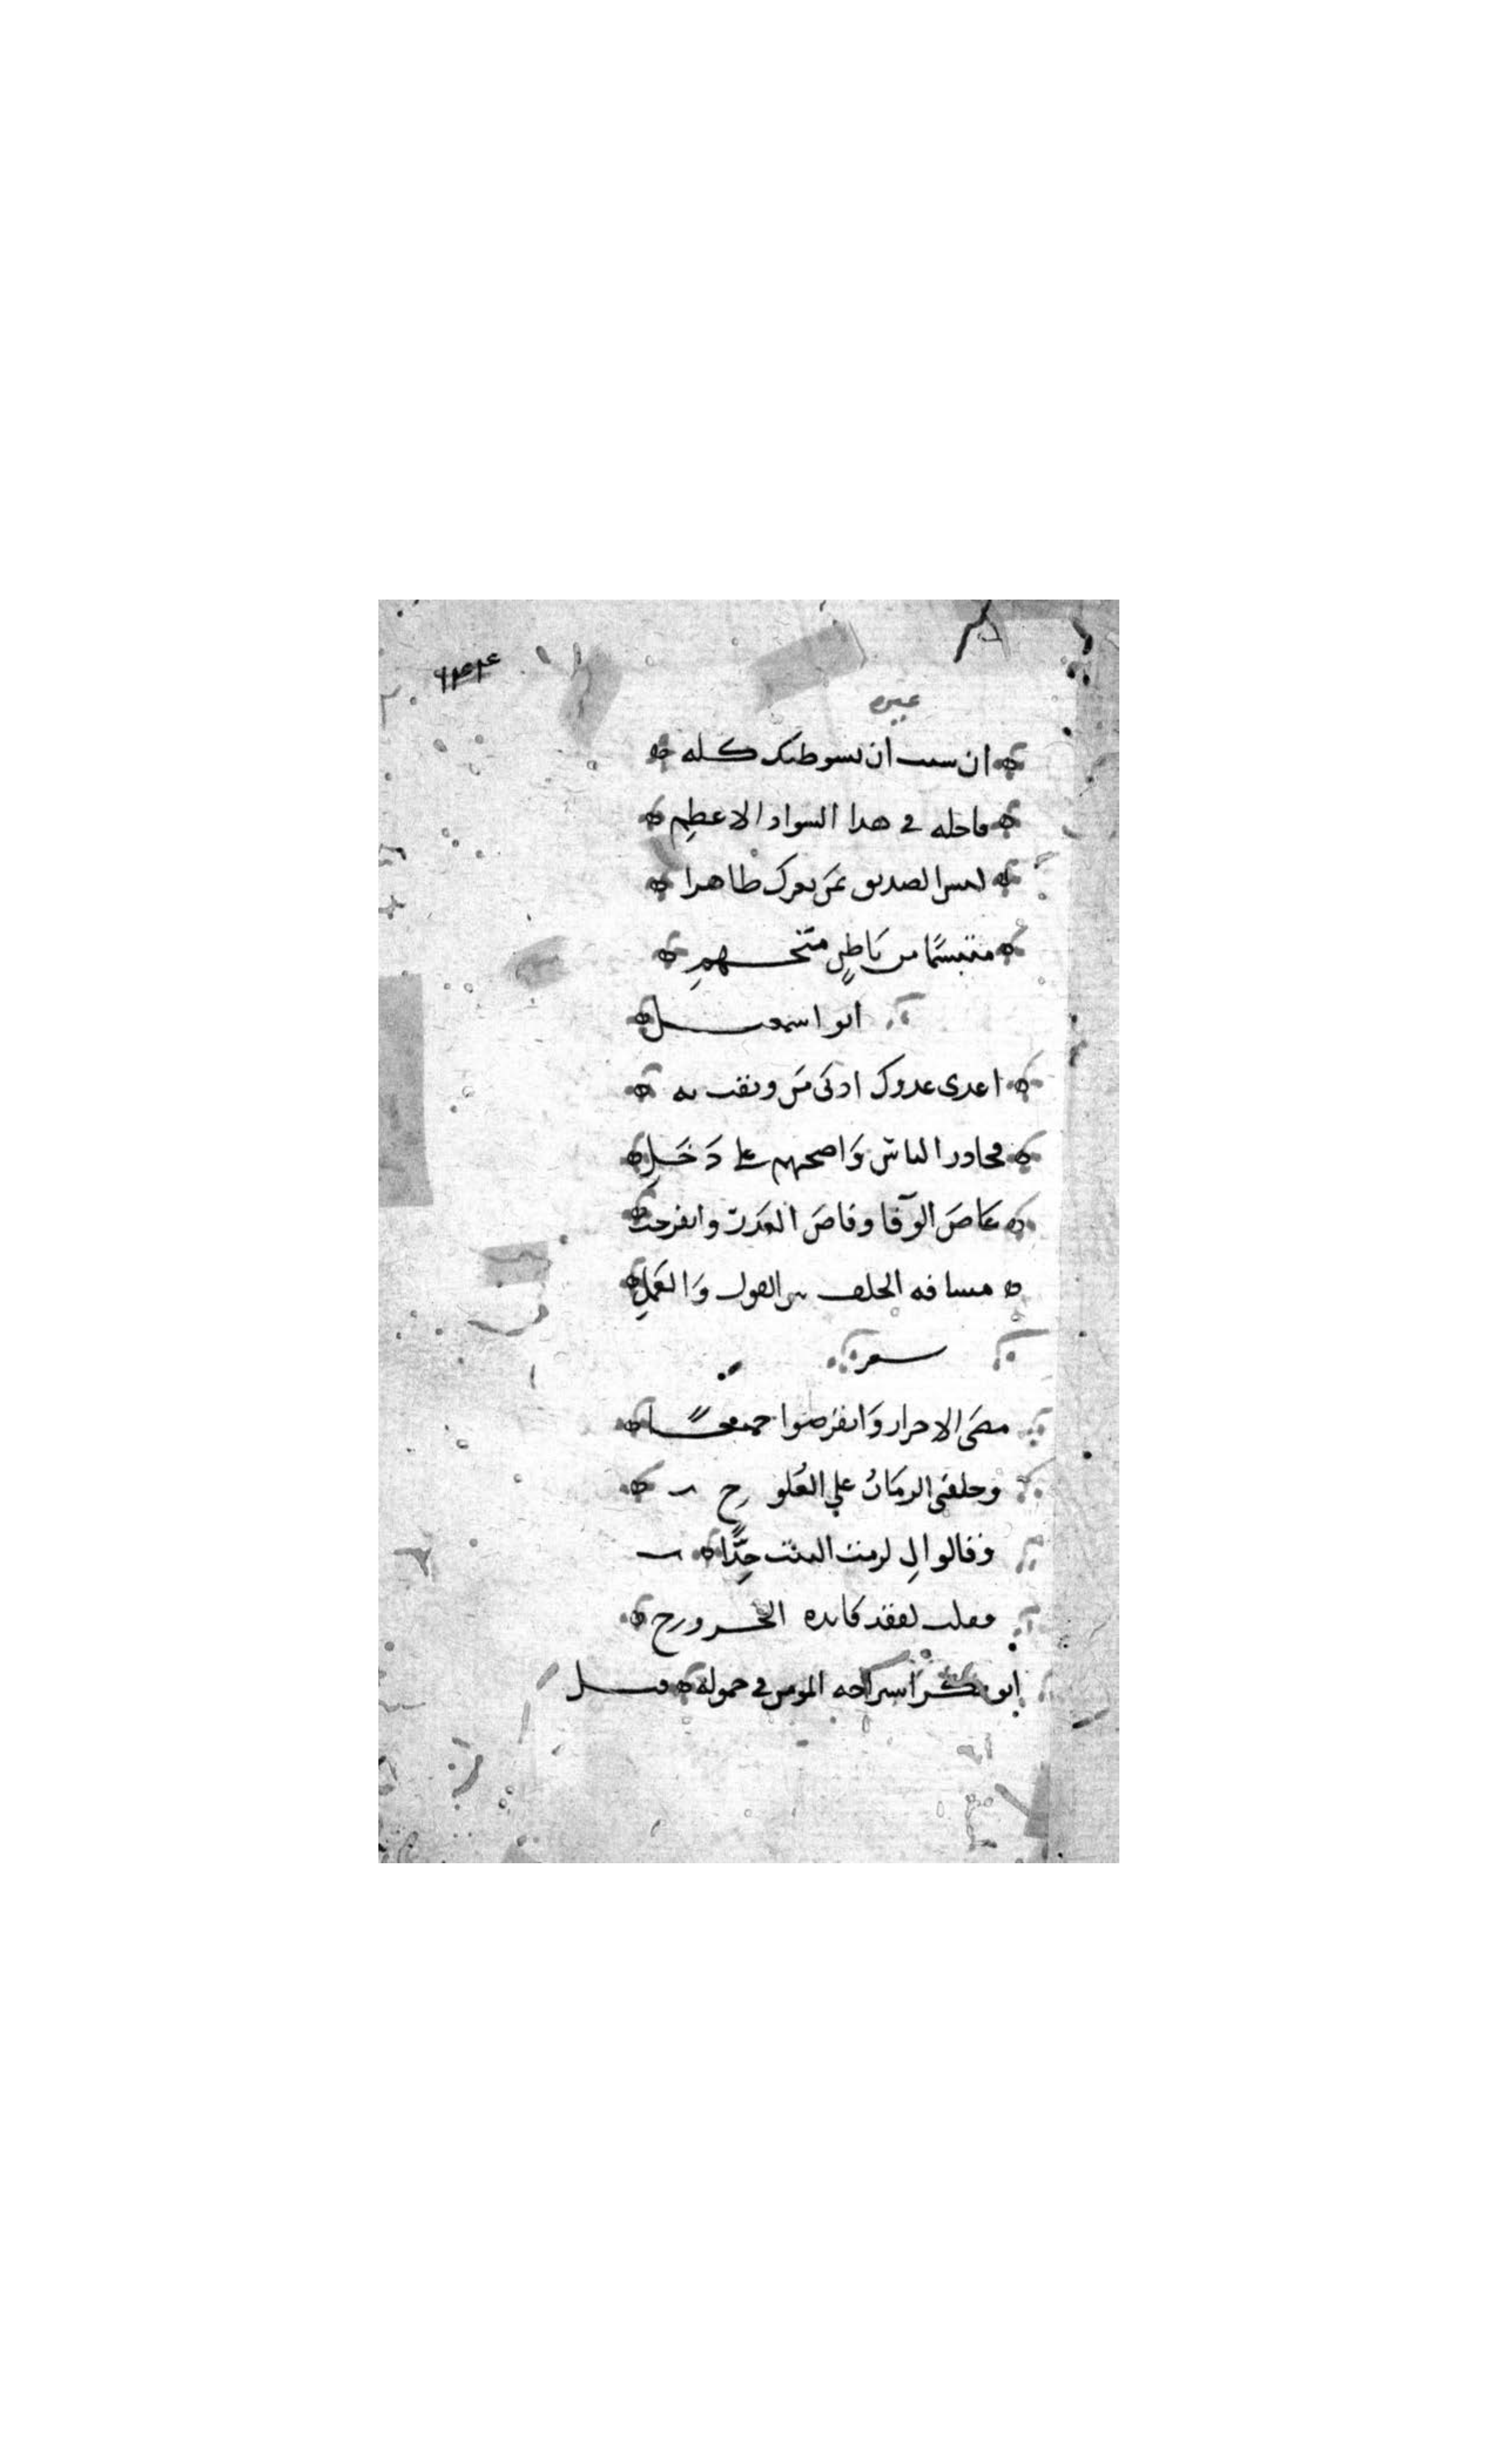 غيره
ان سىت ان تسو ظنك كله
فاحله في هدا السواد الاعظم
ليس الصديق بمن يعرك ظاهرا
متبسمًا من باطنٍ متجهمِ
ابو اسمعيل
اعدى عدوك ادنى من وثقت به
فحادر الناس واصحبهم على دخلِ
غاض الوفا وفاض الغدر وانفرجت
مسافه الخلف بين القول والعملِ
شعر
مضى الاحرار وانقرضوا جميعًا
وخلفني الزمان علي العلوج
وقالوا لي لزمت البيت جدًّا
فقلت لفقد فايده الخروج
ابو بكر راحه المومن في خموله قيل